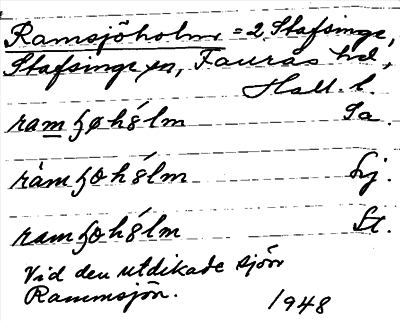 Ramsjöholm = 2, Stafsinge,
Stafsinge sn, Fauras hd,
Hall. l.
ramʒøhólm Ia.
ràmʒøhólm hj.
ramʒøhólm St.
Vid den utdikade sjön
Rammsjön.
1948